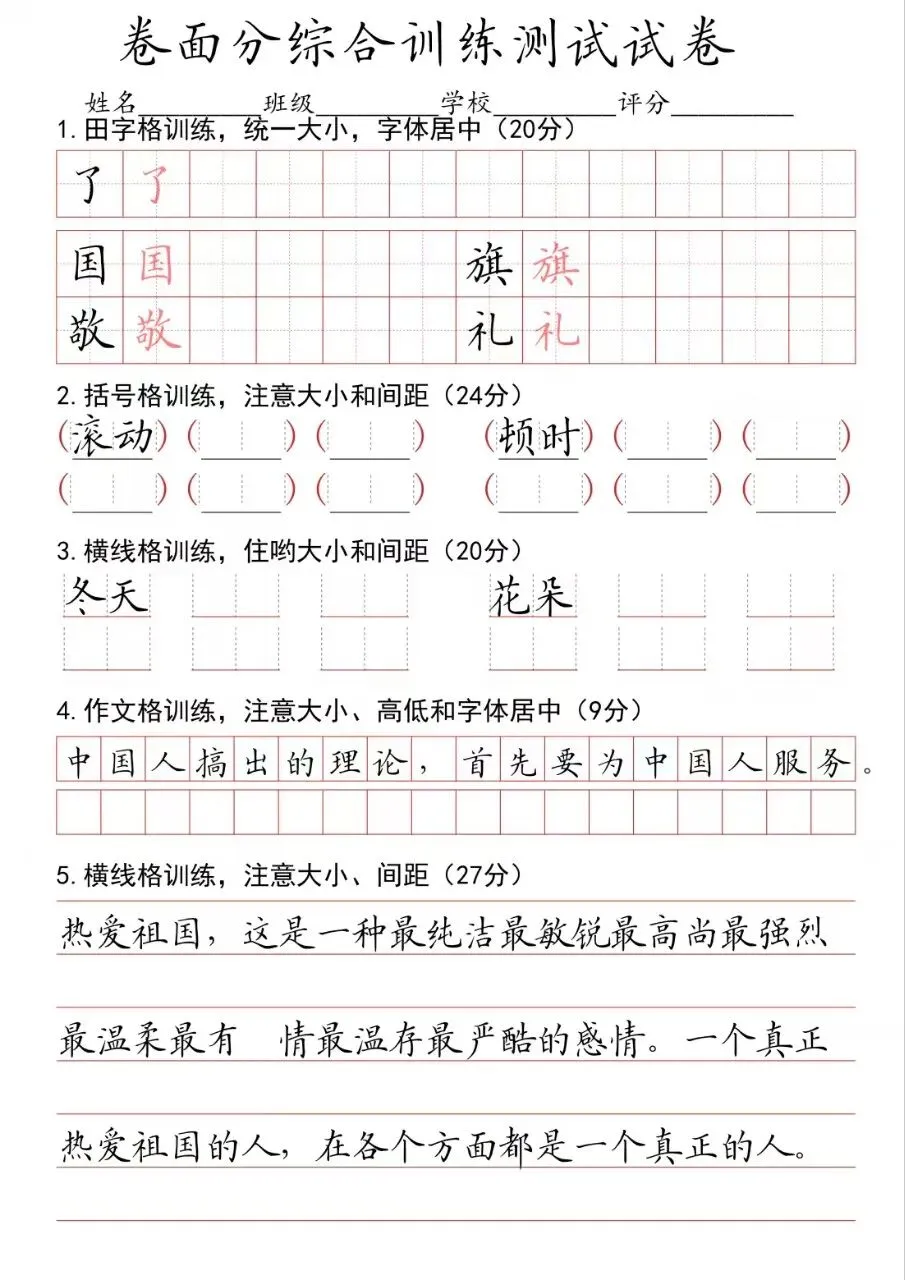 卷面分综合训练测试试卷
姓名________班级________学校________评分________
1.田字格训练，统一大小，字体居中（20分）
了 了
国 国 旗 旗
敬 敬 礼 礼
2.括号格训练，注意大小和间距（24分）
（滚动）（ ）（ ） （顿时）（ ）（ ）
（ ）（ ）（ ） （ ）（ ）（ ）
3.横线格训练，住哟大小和间距（20分）
冬天 花朵
4.作文格训练，注意大小、高低和字体居中（9分）
中国人搞出的理论，首先要为中国人服务。
5.横线格训练，注意大小、间距（27分）
热爱祖国，这是一种最纯洁最敏锐最高尚最强烈
最温柔最有 情最温存最严酷的感情。一个真正
热爱祖国的人，在各个方面都是一个真正的人。